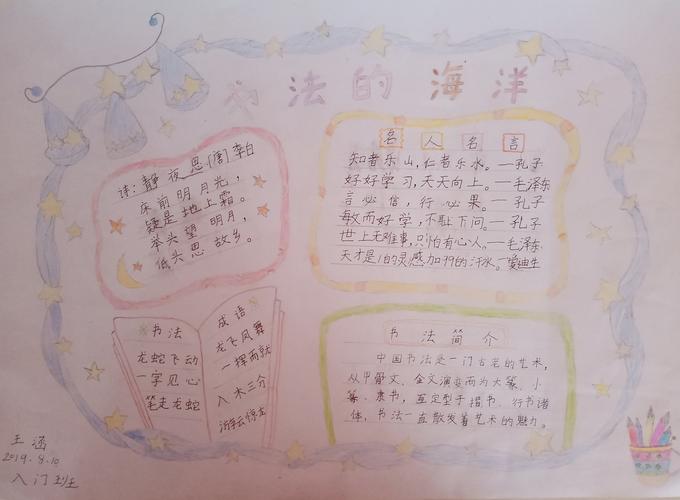 书法的海洋
诗:静夜思[唐]李白
床前明月光,
疑是地上霜。
举头望明月,
低头思故乡。
名人名言
知者乐山,仁者乐水。—孔子
好好学习,天天向上。—毛泽东
言必信,行必果。—孔子
敏而好学,不耻下问。—孔子
世上无难事,只怕有心人。—毛泽东
天才是1的灵感加99的汗水。—爱迪生
书法
龙蛇飞动
一字见心
笔走龙蛇
成语
龙飞凤舞
一挥而就
入木三分
游云惊龙
书法简介
中国书法是一门古老的艺术,
从甲骨文、金文演变而为大篆、小
篆、隶书,至定型于楷书、行书诸
体,书法一直散发着艺术的魅力。
王涵
2019.8.10
入门班